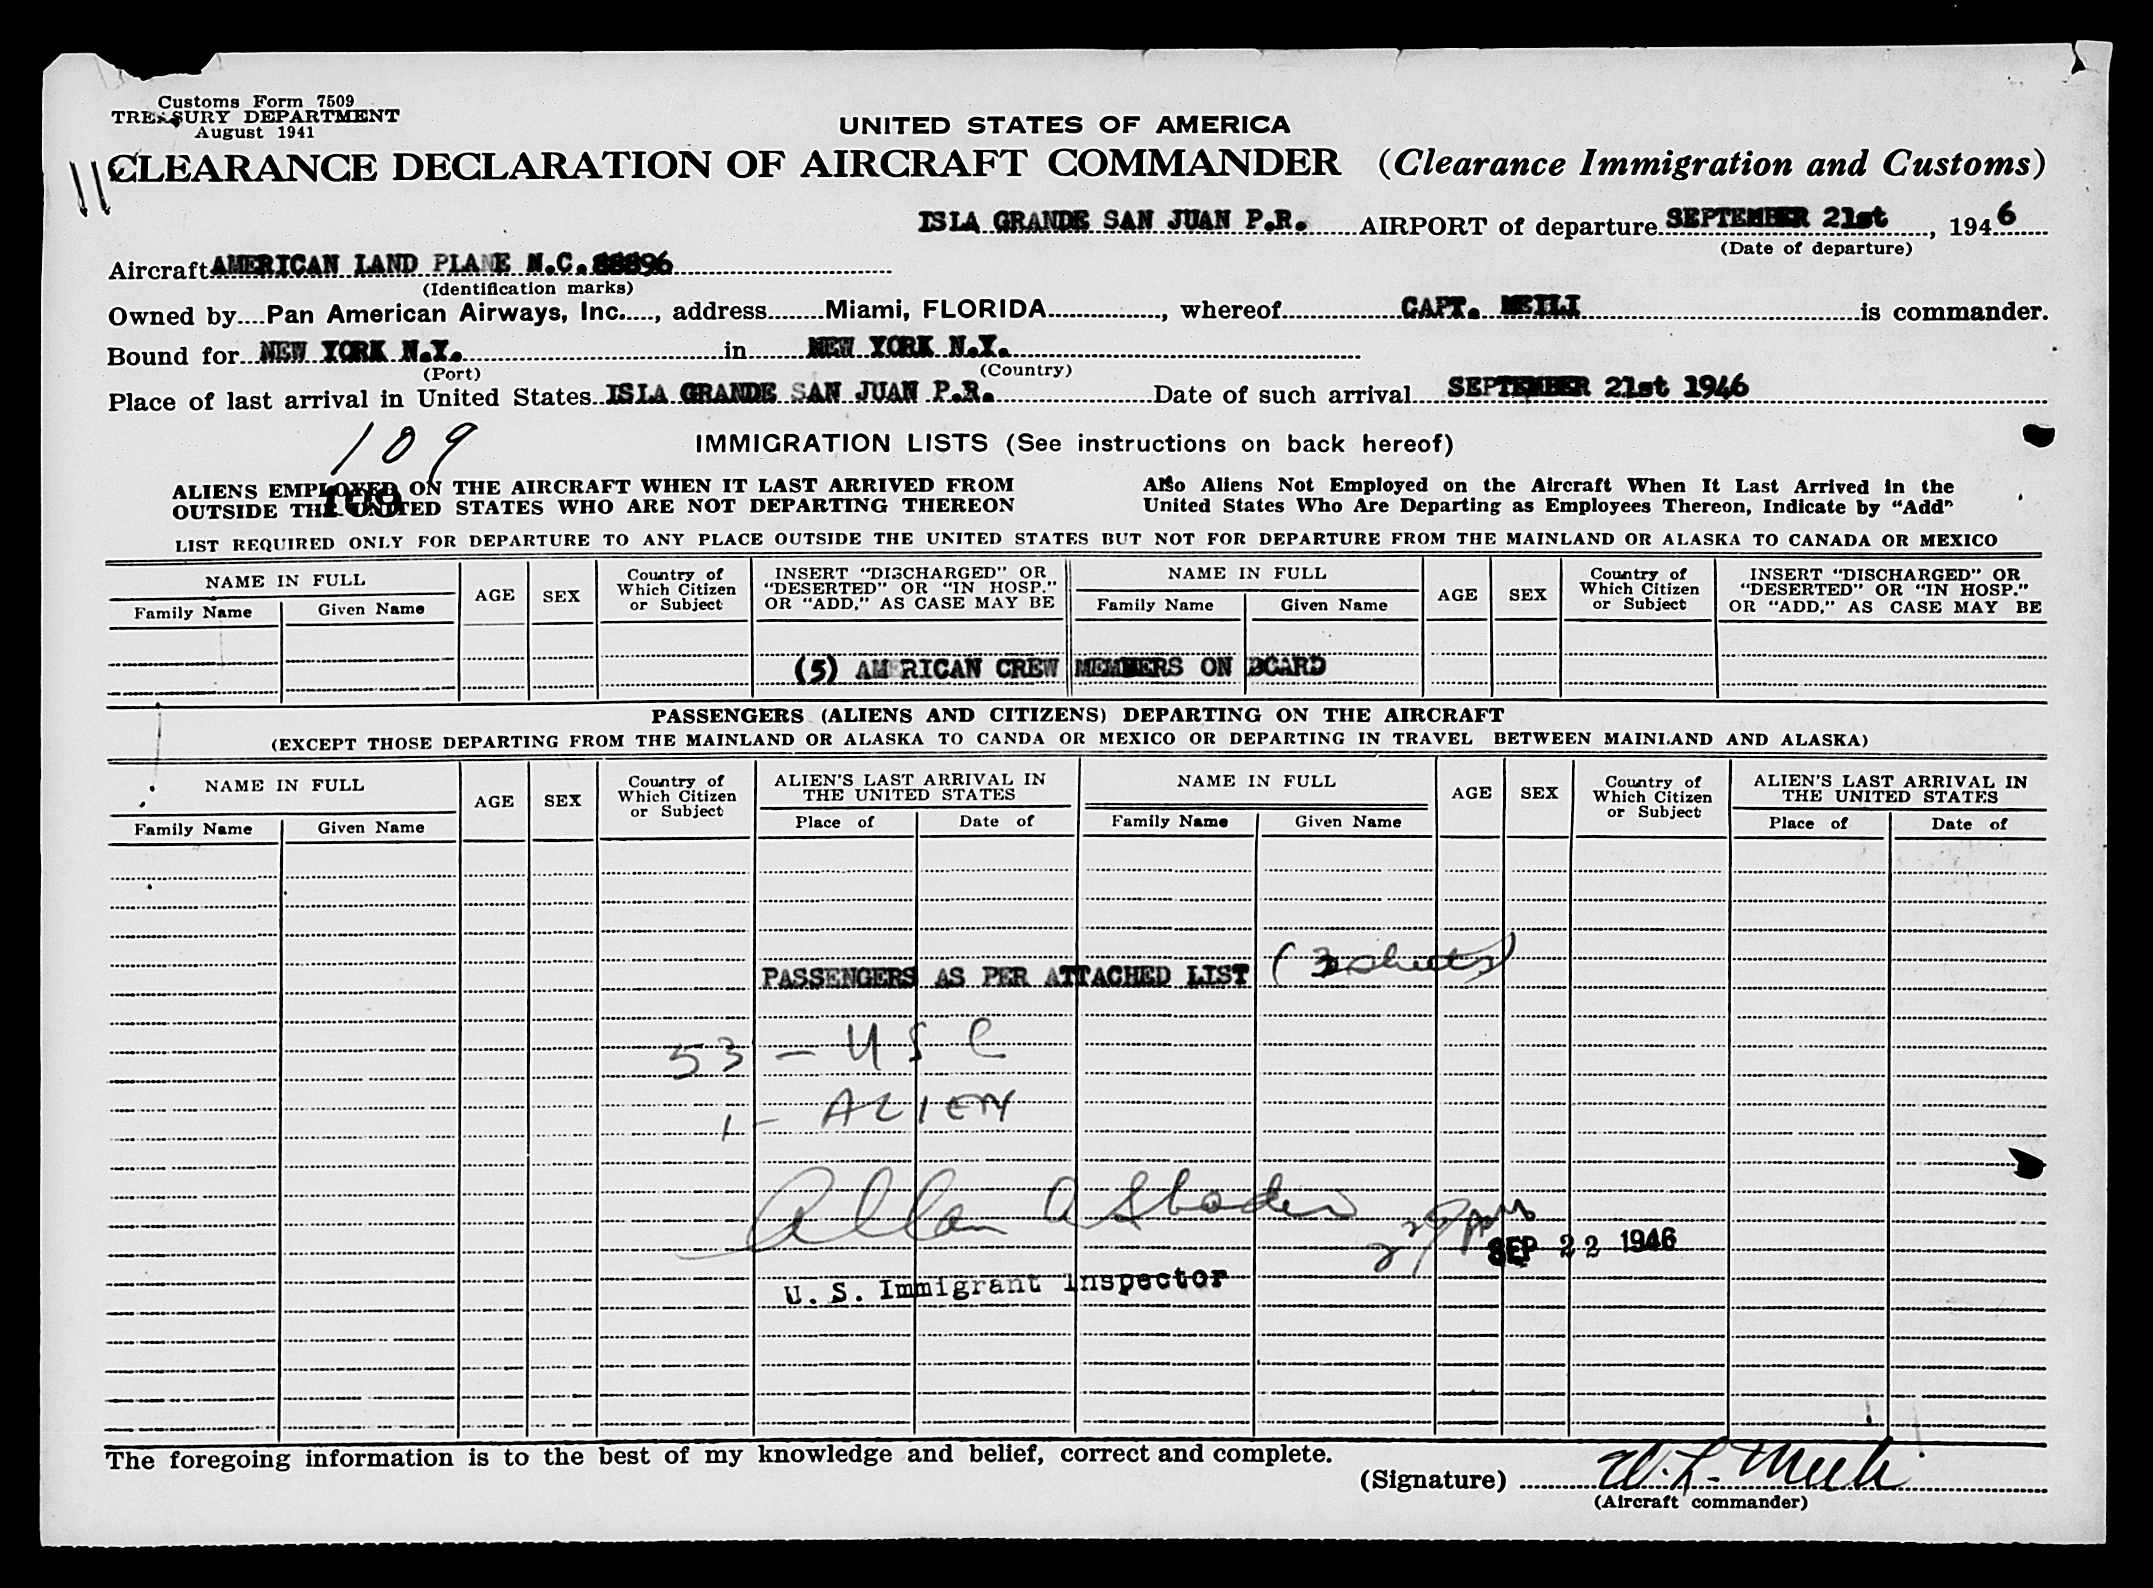 Customs Form 7509
TREASURY DEPARTMENT
August 1941
UNITED STATES OF AMERICA
CLEARANCE DECLARATION OF AIRCRAFT COMMANDER (Clearance Immigration and Customs)
ISLA GRANDE SAN JUAN P.R. AIRPORT of departure SEPTEMBER 21st, 1946
(Date of departure)
Aircraft AMERICAN LAND PLANE N.C. 88896
(Identification marks)
Owned by Pan American Airways, Inc., address Miami, FLORIDA, whereof CAPT. MEILI is commander.
Bound for NEW YORK N.Y. in NEW YORK N.Y.
(Port) (Country)
Place of last arrival in United States ISLA GRANDE SAN JUAN P.R. Date of such arrival SEPTEMBER 21st 1946
109
IMMIGRATION LISTS (See instructions on back hereof)
ALIENS EMPLOYED ON THE AIRCRAFT WHEN IT LAST ARRIVED FROM Also Aliens Not Employed on the Aircraft When It Last Arrived in the
109
OUTSIDE THE UNITED STATES WHO ARE NOT DEPARTING THEREON United States Who Are Departing as Employees Thereon, Indicate by “Add”
LIST REQUIRED ONLY FOR DEPARTURE TO ANY PLACE OUTSIDE THE UNITED STATES BUT NOT FOR DEPARTURE FROM THE MAINLAND OR ALASKA TO CANADA OR MEXICO
NAME IN FULL
Family Name Given Name
AGE SEX
Country of
Which Citizen
or Subject
INSERT “DISCHARGED” OR
“DESERTED” OR “IN HOSP.”
OR “ADD,” AS CASE MAY BE
NAME IN FULL
Family Name Given Name
AGE SEX
Country of
Which Citizen
or Subject
INSERT “DISCHARGED” OR
“DESERTED” OR “IN HOSP.”
OR “ADD,” AS CASE MAY BE
(5) AMERICAN CREW MEMBERS ON BOARD
PASSENGERS (ALIENS AND CITIZENS) DEPARTING ON THE AIRCRAFT
(EXCEPT THOSE DEPARTING FROM THE MAINLAND OR ALASKA TO CANDA OR MEXICO OR DEPARTING IN TRAVEL BETWEEN MAINLAND AND ALASKA)
NAME IN FULL
Family Name Given Name
AGE SEX
Country of
Which Citizen
or Subject
ALIEN'S LAST ARRIVAL IN
THE UNITED STATES
Place of Date of
NAME IN FULL
Family Name Given Name
AGE SEX
Country of
Which Citizen
or Subject
ALIEN'S LAST ARRIVAL IN
THE UNITED STATES
Place of Date of
PASSENGERS AS PER ATTACHED LIST (3 sheets)
53 - USC
1 - ALIEN
Allan A
SEP 22 1946
U. S. Immigrant Inspector
The foregoing information is to the best of my knowledge and belief, correct and complete.
(Signature) W. L. Meili
(Aircraft commander)